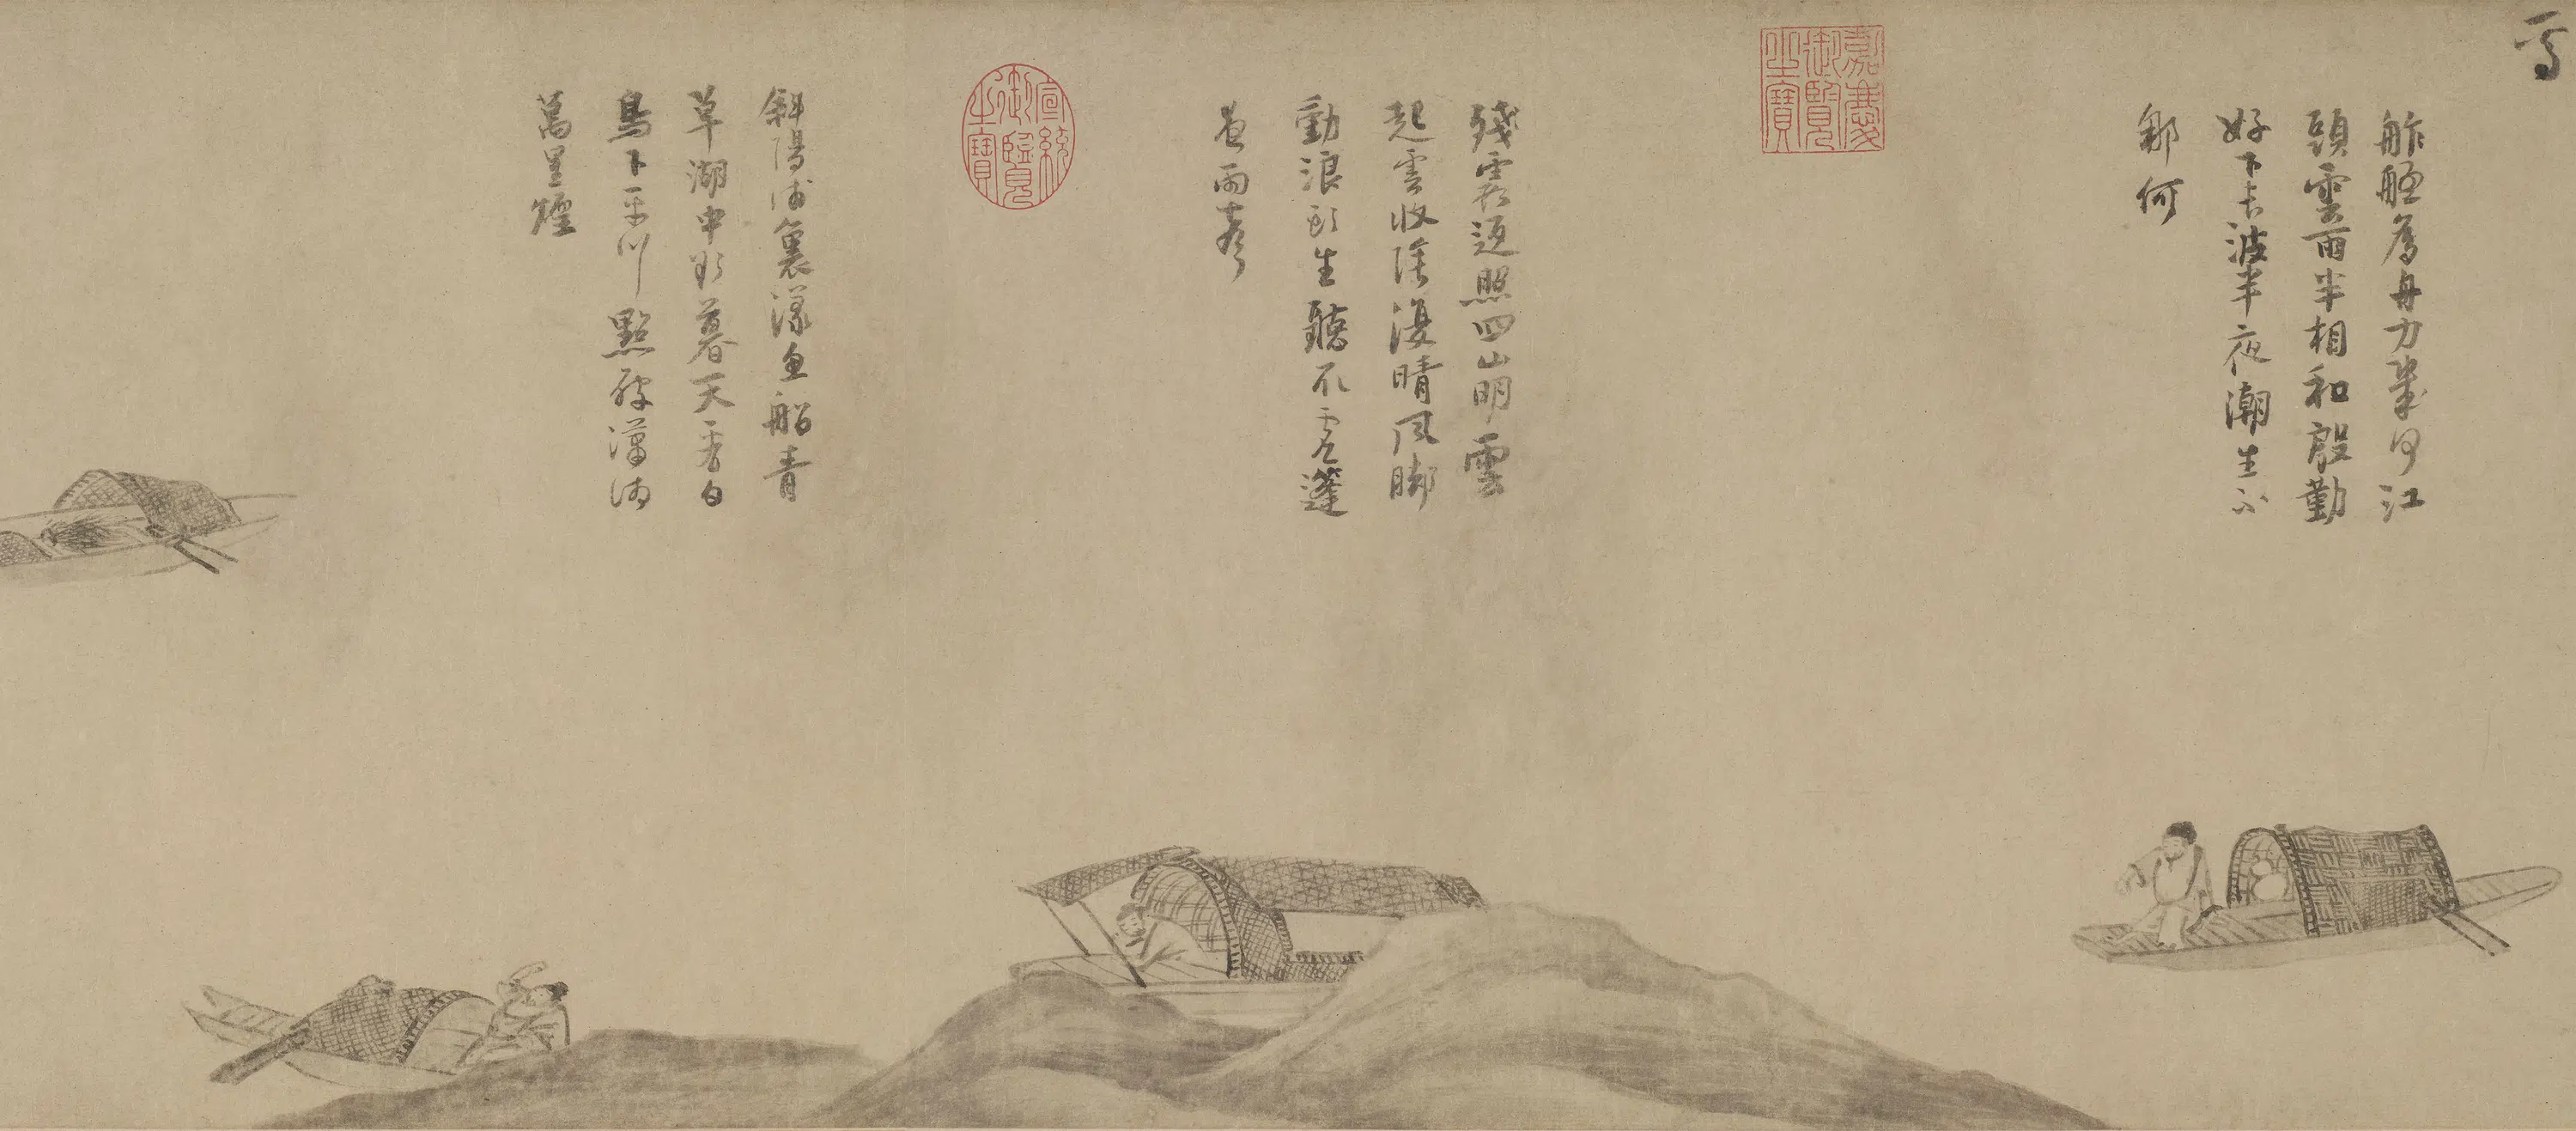 舴艋為舟力幾多江
頭雲雨半相和殷勤
好下長波半夜潮生不
那何
嘉慶
御覽
之寶
殘霞返照四山明雲
起雲收陰復晴風脚
動浪頭生聽取虛篷
夜雨聲
宣統
御覽
之寶
斜陽浦裏漾漁船青
草湖中欲暮天看白
鳥下平川點破瀟湘
萬里煙